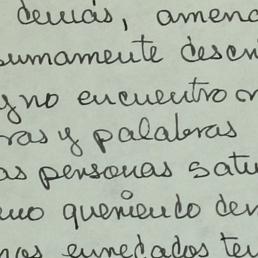 demás, amena
sumamente descri
y no encuentro m
ras y palabras
as personas satu
uno queriendo der
nos enredados ten